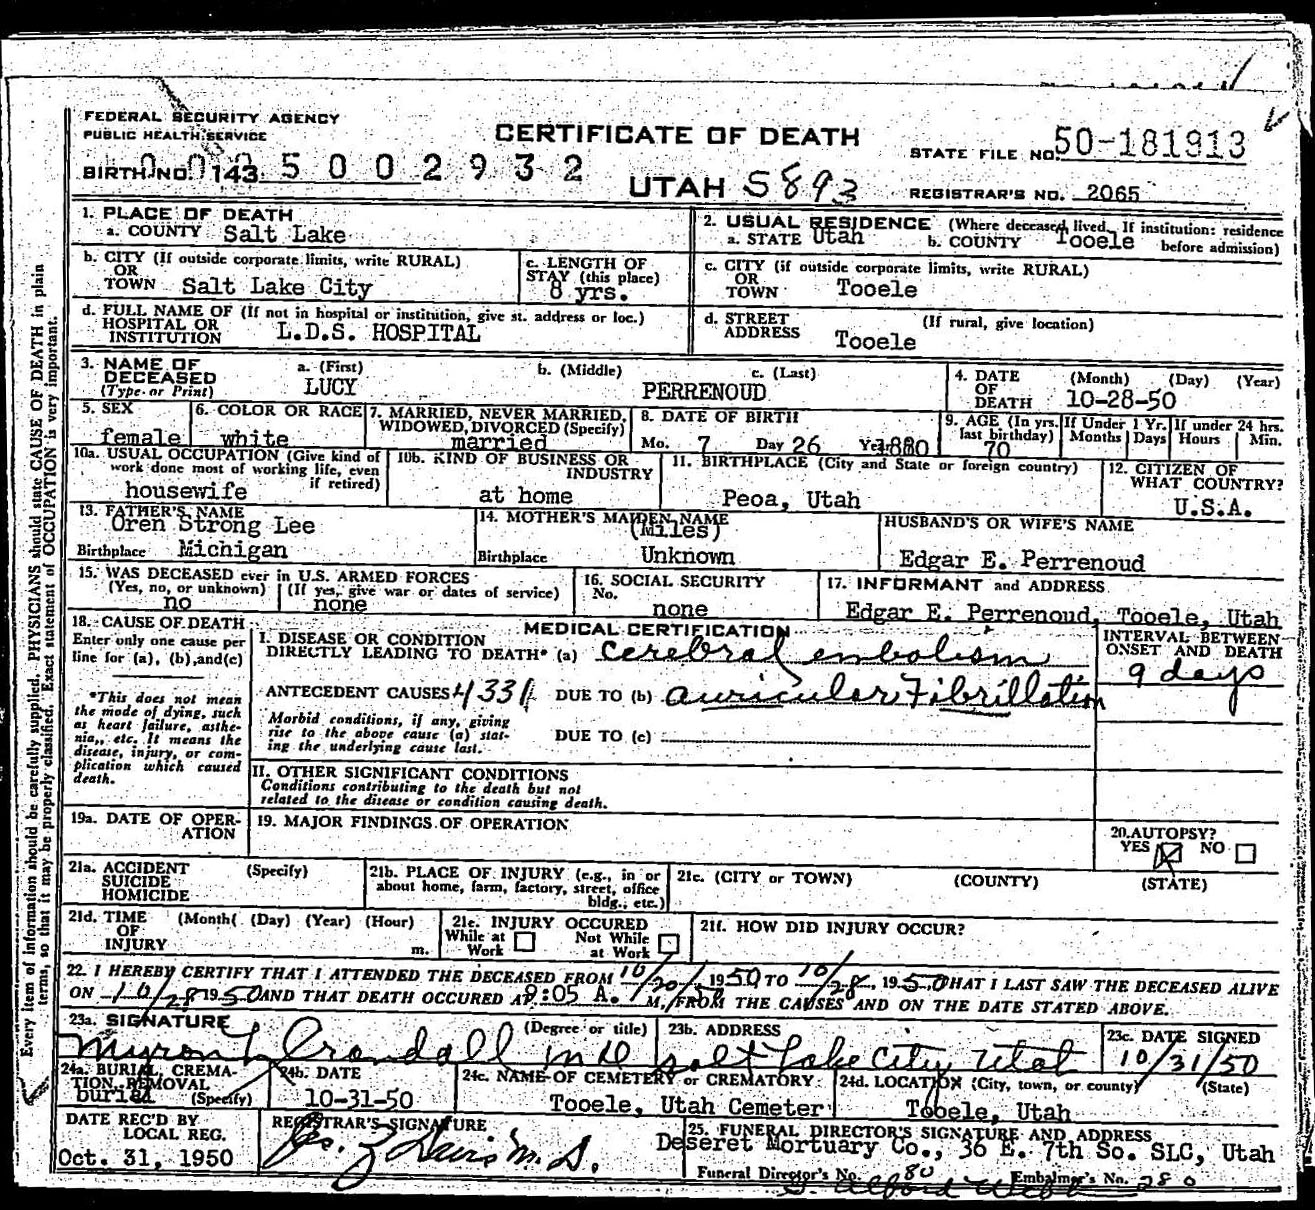 FEDERAL SECURITY AGENCY
PUBLIC HEALTH SERVICE
CERTIFICATE OF DEATH
STATE FILE NO. 50-181913
BIRTH NO. 143 5 0 0 2 9 3 2
UTAH 5893
REGISTRAR'S NO. 2065
Every item of information should be carefully supplied. PHYSICIANS should state CAUSE OF DEATH in plain
terms, so that it may be properly classified. Exact statement of OCCUPATION is very important.
1. PLACE OF DEATH
a. COUNTY Salt Lake
2. USUAL RESIDENCE (Where deceased lived. If institution: residence
a. STATE Utah b. COUNTY Tooele before admission)
b. CITY (If outside corporate limits, write RURAL)
OR
TOWN Salt Lake City
c. LENGTH OF
STAY (this place)
8 yrs.
c. CITY (if outside corporate limits, write RURAL)
OR
TOWN Tooele
d. FULL NAME OF (If not in hospital or institution, give st. address or loc.)
HOSPITAL OR
INSTITUTION L.D.S. HOSPITAL
d. STREET (If rural, give location)
ADDRESS Tooele
3. NAME OF
DECEASED
(Type or Print)
a. (First) b. (Middle) c. (Last)
LUCY PERRENOUD
4. DATE (Month) (Day) (Year)
OF
DEATH 10-28-50
5. SEX
female
6. COLOR OR RACE
white
7. MARRIED, NEVER MARRIED,
WIDOWED, DIVORCED (Specify)
married
8. DATE OF BIRTH
Mo. 7 Day 26 Year 1880
9. AGE (In yrs.
last birthday)
70
If Under 1 Yr.
Months Days
If under 24 hrs.
Hours Min.
10a. USUAL OCCUPATION (Give kind of
work done most of working life, even
if retired)
housewife
10b. KIND OF BUSINESS OR
INDUSTRY
at home
11. BIRTHPLACE (City and State or foreign country)
Peoa, Utah
12. CITIZEN OF
WHAT COUNTRY?
U.S.A.
13. FATHER'S NAME
Oren Strong Lee
Birthplace Michigan
14. MOTHER'S MAIDEN NAME
(Miles)
Birthplace Unknown
HUSBAND'S OR WIFE'S NAME
Edgar E. Perrenoud
15. WAS DECEASED ever in U.S. ARMED FORCES
(Yes, no, or unknown) (If yes, give war or dates of service)
no none
16. SOCIAL SECURITY
No.
none
17. INFORMANT and ADDRESS
Edgar E. Perrenoud, Tooele, Utah
18. CAUSE OF DEATH
Enter only one cause per
line for (a), (b), and (c)
*This does not mean
the mode of dying, such
as heart failure, asthe-
nia, etc. It means the
disease, injury, or com-
plication which caused
death.
MEDICAL CERTIFICATION
I. DISEASE OR CONDITION
DIRECTLY LEADING TO DEATH* (a) cerebral embolism
INTERVAL BETWEEN
ONSET AND DEATH
9 days
ANTECEDENT CAUSES 4331 DUE TO (b) auricular Fibrillation
Morbid conditions, if any, giving
rise to the above cause (a) stat-
ing the underlying cause last.
DUE TO (c)
II. OTHER SIGNIFICANT CONDITIONS
Conditions contributing to the death but not
related to the disease or condition causing death.
19a. DATE OF OPER-
ATION
19. MAJOR FINDINGS OF OPERATION
20. AUTOPSY?
YES X NO
21a. ACCIDENT (Specify)
SUICIDE
HOMICIDE
21b. PLACE OF INJURY (e.g., in or
about home, farm, factory, street, office
bldg., etc.)
21c. (CITY or TOWN) (COUNTY) (STATE)
21d. TIME (Month) (Day) (Year) (Hour)
OF
INJURY m.
21e. INJURY OCCURED
While at Not While
Work at Work
21f. HOW DID INJURY OCCUR?
22. I HEREBY CERTIFY THAT I ATTENDED THE DECEASED FROM 10/20/, 1950 TO 10/28, 1950 THAT I LAST SAW THE DECEASED ALIVE
ON 10/28 1950 AND THAT DEATH OCCURED AT 8:05 A. M, FROM THE CAUSES AND ON THE DATE STATED ABOVE.
23a. SIGNATURE (Degree or title)
Myron L Crandall M D
23b. ADDRESS
Salt Lake City Utah
23c. DATE SIGNED
10/31/50
24a. BURIAL, CREMA-
TION, REMOVAL
(Specify)
burial
24b. DATE
10-31-50
24c. NAME OF CEMETERY or CREMATORY
Tooele, Utah Cemeter
24d. LOCATION (City, town, or county) (State)
Tooele, Utah
DATE REC'D BY
LOCAL REG.
Oct. 31, 1950
REGISTRAR'S SIGNATURE
Davis M. D.
25. FUNERAL DIRECTOR'S SIGNATURE AND ADDRESS
Deseret Mortuary Co., 36 E. 7th So. SLC, Utah
Funeral Director's No. 80 Embalmer's No. 280
Alford